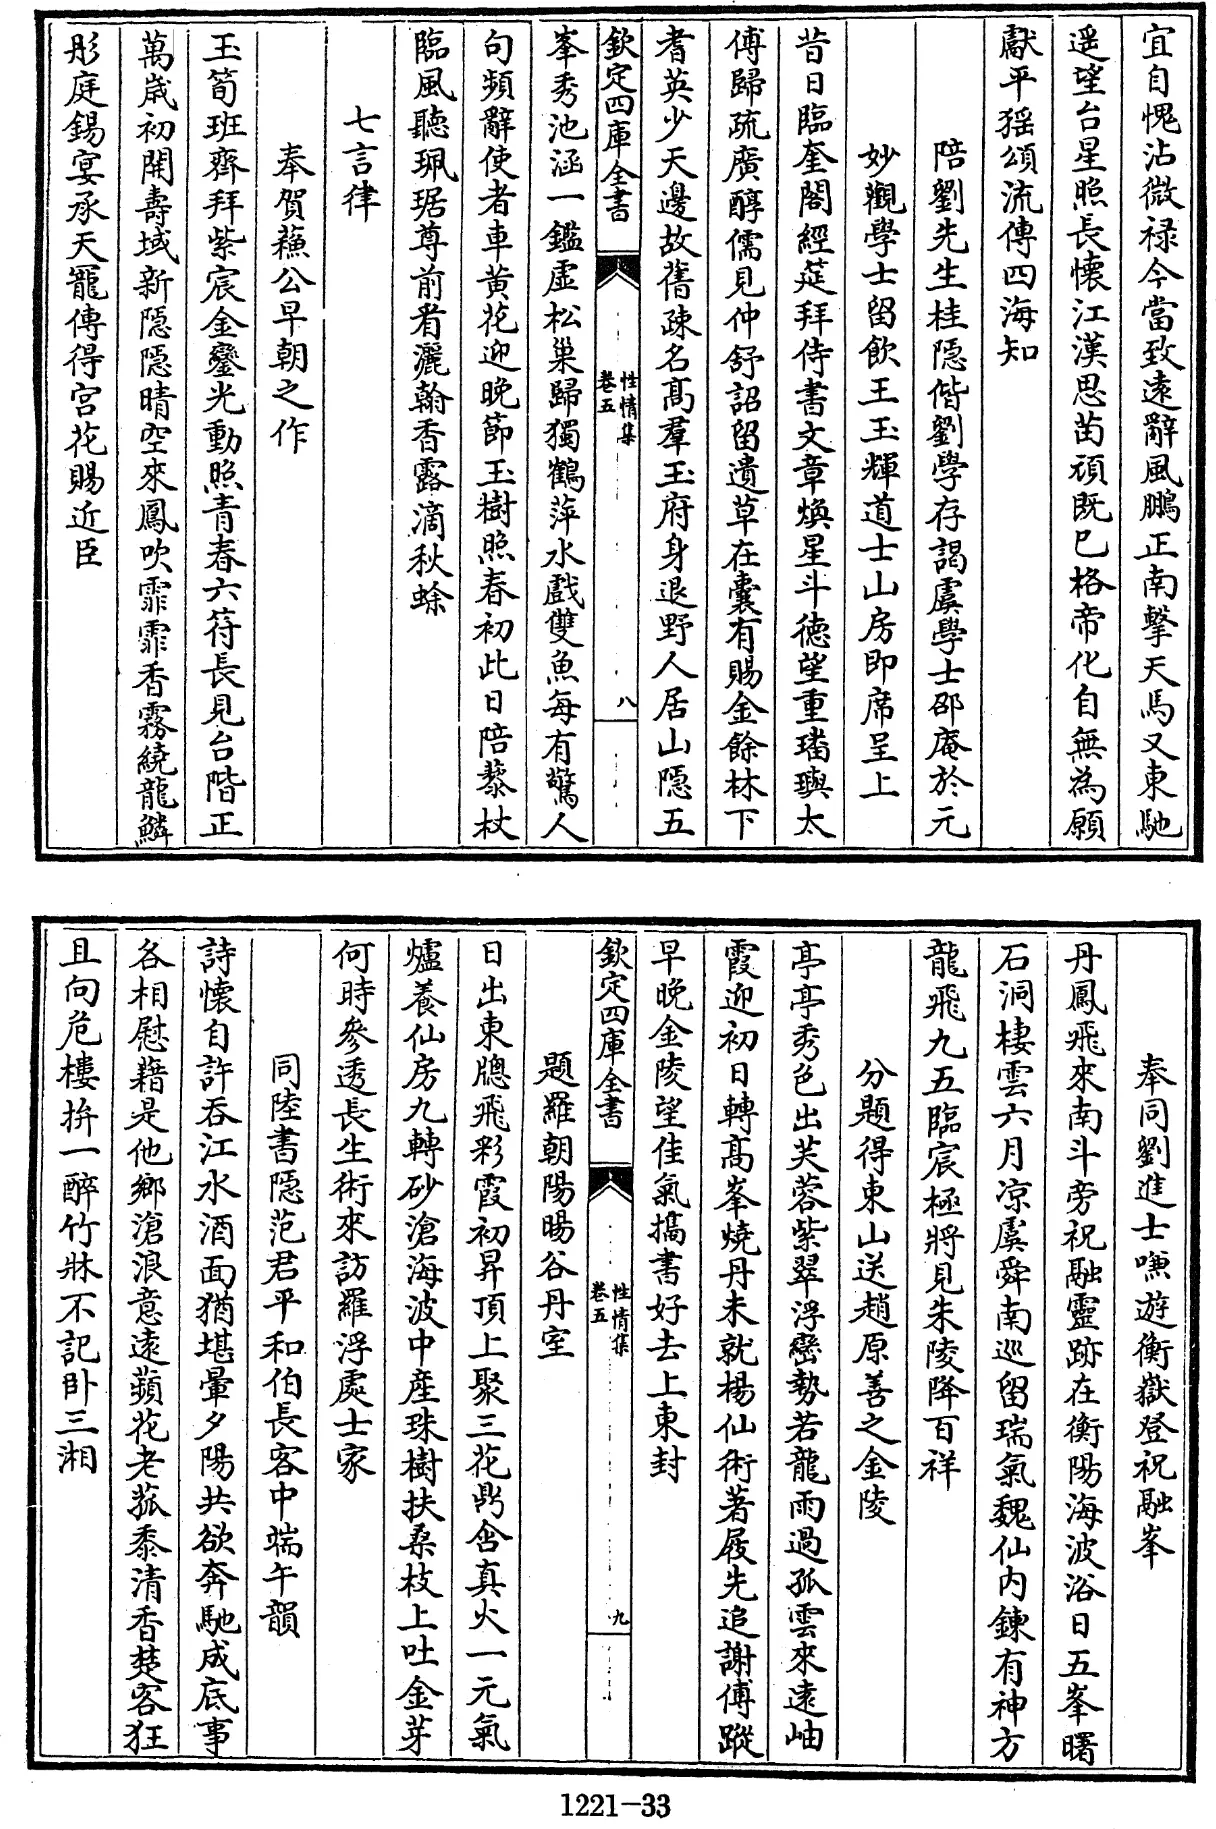 宜自愧沾微禄今當致遠辭風鵬正南擊天馬又東馳
遥望台星照長懐江漢思苗頑既已格帝化自無為願
獻平猺頌流傳四海知
陪劉先生桂隠偕劉學存謁虞學士邵庵於元
妙觀學士留飲王玉輝道士山房即席呈上
昔日臨奎閣經莚拜侍書文章煥星斗徳望重璠璵太
傅歸疏廣醇儒見仲舒詔留遺草在囊有賜金餘林下
耆英少天邊故舊疎名髙羣玉府身退野人居山隠五
欽定四庫全書
性情集
卷五
八
峯秀池涵一鑑虛松巢歸獨鶴萍水戲雙魚每有驚人
句頻辭使者車黄花迎晩節玉樹照春初此日陪藜杖
臨風聽珮琚尊前看灑翰香露滴秋蜍
七言律
奉賀蘓公早朝之作
玉筍班齊拜紫宸金鑾光動照青春六符長見台階正
萬歳初開壽域新隠隠晴空來鳳吹霏霏香霧繞龍鱗
彤庭錫宴承天寵傳得宫花賜近臣
奉同劉進士㗖遊衡嶽登祝融峯
丹鳳飛來南斗旁祝融靈跡在衡陽海波浴日五峯曙
石洞棲雲六月凉虞舜南廵留瑞氣魏仙内鍊有神方
龍飛九五臨宸極將見朱陵降百祥
分題得東山送趙原善之金陵
亭亭秀色出芙蓉紫翠浮巒勢若龍雨過孤雲來逺岫
霞迎初日轉髙峯燒丹未就楊仙術著屐先追謝傅蹤
早晩金陵望佳氣擕書好去上東封
欽定四庫全書
性情集
卷五
九
題羅朝陽暘谷丹室
日出東牕飛彩霞初昇頂上聚三花鼎含真火一元氣
爐養仙房九轉砂滄海波中産珠樹扶桑枝上吐金芽
何時參透長生術來訪羅浮處士家
同陸書隠范君平和伯長客中端午韻
詩懐自許吞江水酒面猶堪暈夕陽共欲奔馳成底事
各相慰藉是他鄉滄浪意遠蘋花老菰黍清香楚客狂
且向危樓拚一醉竹牀不記卧三湘
1221-33